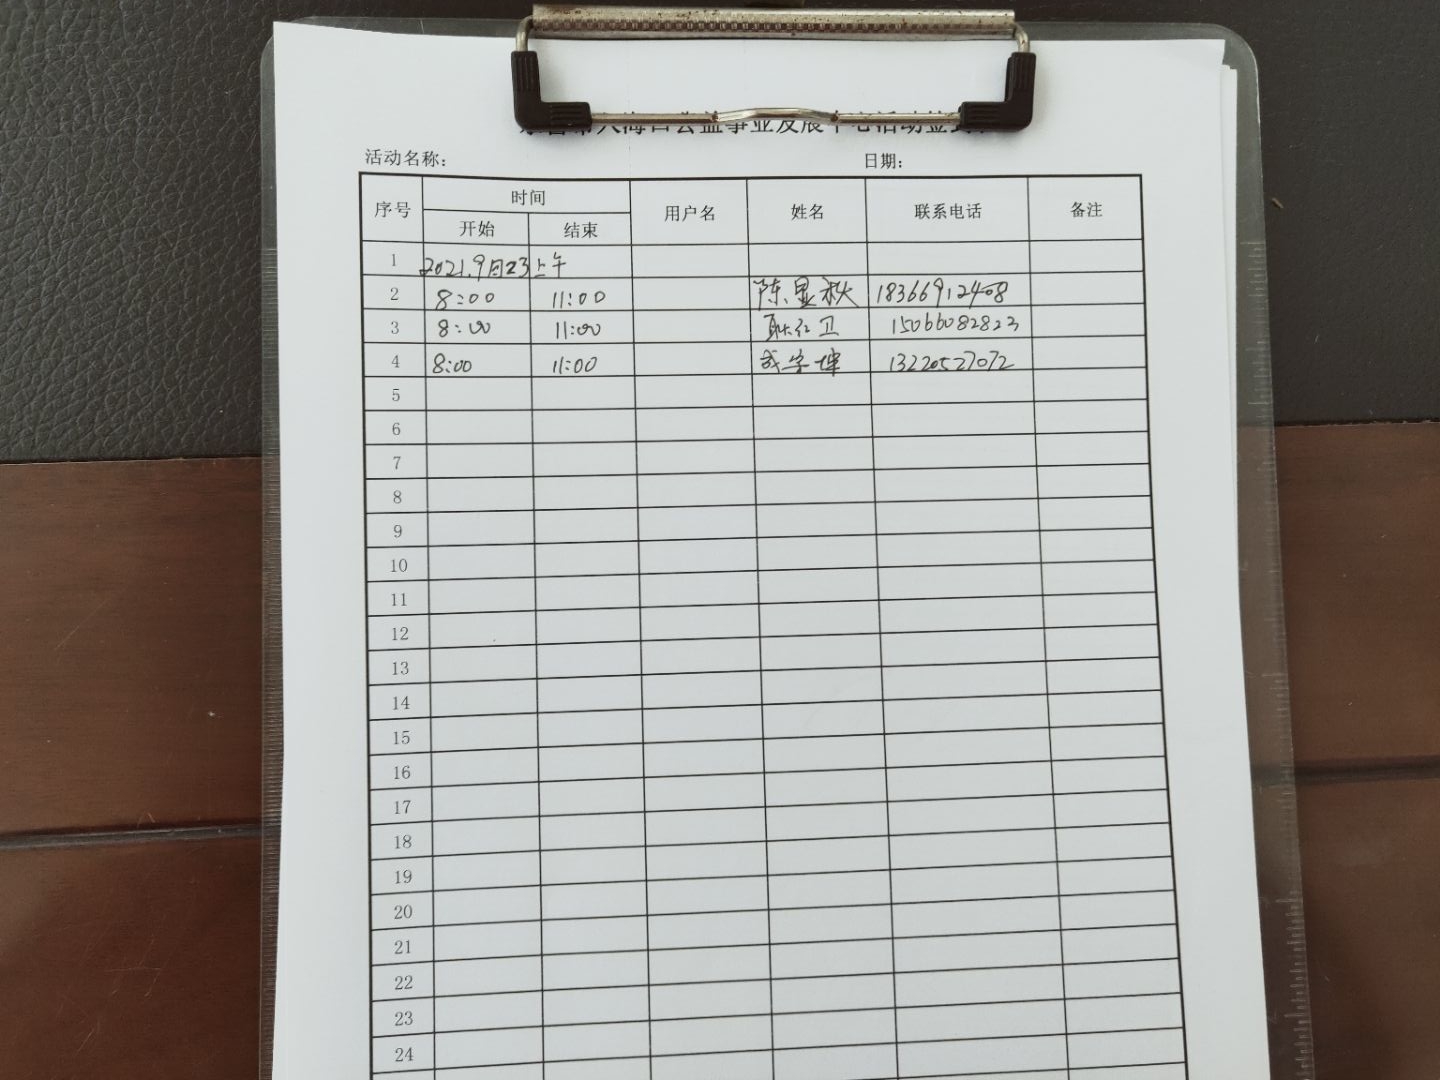 海口公益事业发展中心活动签到
活动名称： 日期：
序号 时间 用户名 姓名 联系电话 备注
开始 结束
1 2021.9月23上午
2 8:00 11:00 陈显秋 18366912408
3 8:00 11:00 耿红卫 15066082823
4 8:00 11:00 13220527072
5
6
7
8
9
10
11
12
13
14
15
16
17
18
19
20
21
22
23
24